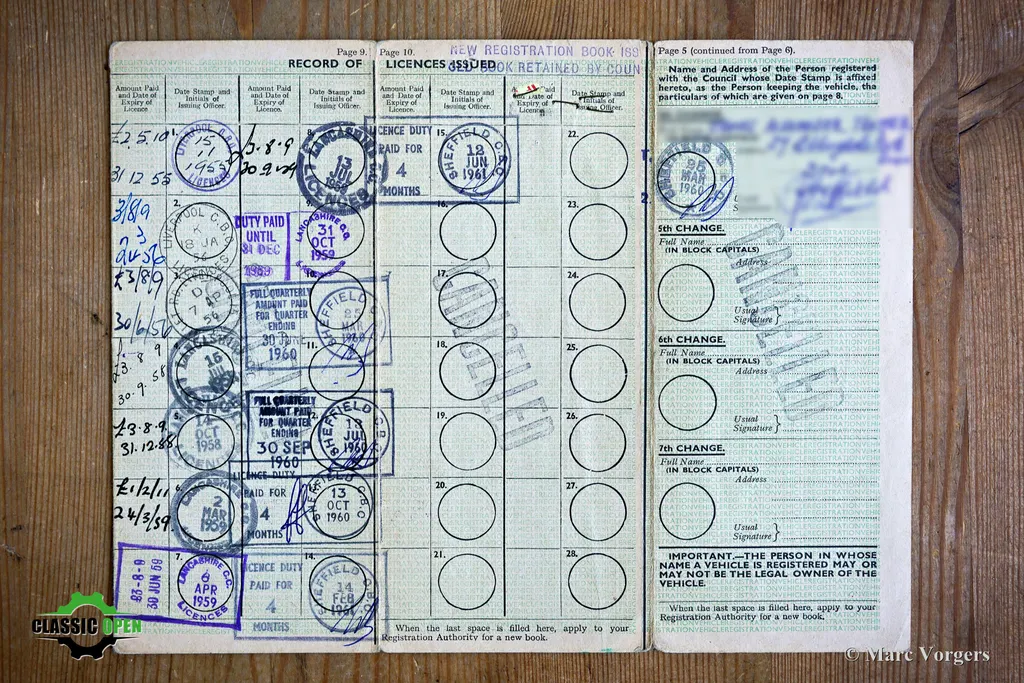 Page 9.
RECORD OF
Amount Paid and Date of Expiry of Licence.
Date Stamp and Initials of Issuing Officer.
Amount Paid and Date of Expiry of Licence.
Date Stamp and Initials of Issuing Officer.
£2 5.10
31 12 55
15
1955
LICENCES
2.
LIVERPOOL C.B.C.
18 JA
56
£3/8/9
30/6/56
7 AP
56
16
£3.
30.9.58
5.
14
OCT
1958
£3.8.9.
31.12.58
£1/2/11
24/3/59
2
MAR
1959
7.
£3-8-9
30 JUN 59
LANCASHIRE C.C.
6
APR
1959
LICENCES
3.8.9
LANCASHIRE
13
JUL
1959
LICENCES
DUTY PAID
UNTIL
31 DEC
1959
LANCASHIRE C.C.
31
OCT
1959
10.
FULL QUARTERLY
AMOUNT PAID
FOR QUARTER
ENDING
30 JUNE
1960
SHEFFIELD
25
MAR
1960
11.
FULL QUARTERLY
AMOUNT PAID
FOR QUARTER
ENDING
30 SEP
1960
12.
SHEFFIELD C.B.C.
JUL
1960
LICENCE DUTY
PAID FOR
4
MONTHS
SHEFFIELD C.B.C.
13
OCT
1960
14.
LICENCE DUTY
PAID FOR
4
MONTHS
SHEFFIELD C.B.C.
14
FEB
1961
Page 10.
NEW REGISTRATION BOOK
OLD BOOK RETAINED BY COUN
LICENCES ISSUED
Amount Paid and Date of Expiry of Licence.
Date Stamp and Initials of Issuing Officer.
Amount Paid and Date of Expiry of Licence.
Date Stamp and Initials of Issuing Officer.
LICENCE DUTY
PAID FOR
4
MONTHS
15.
SHEFFIELD C.B.C.
12
JUN
1961
16.
17.
18.
19.
20.
21.
22.
23.
24.
25.
26.
27.
28.
CANCELLED
When the last space is filled here, apply to your
Registration Authority for a new book.
Page 5 (continued from Page 6).
Name and Address of the Person registered
with the Council whose Date Stamp is affixed
hereto, as the Person keeping the vehicle, the
particulars of which are given on page 8.
SHEFFIELD
25
MAR
1960
5th CHANGE.
Full Name
(IN BLOCK CAPITALS)
Address
Usual
Signature
CANCELLED
6th CHANGE.
Full Name
(IN BLOCK CAPITALS)
Address
Usual
Signature
7th CHANGE.
Full Name
(IN BLOCK CAPITALS)
Address
Usual
Signature
IMPORTANT.—THE PERSON IN WHOSE
NAME A VEHICLE IS REGISTERED MAY OR
MAY NOT BE THE LEGAL OWNER OF THE
VEHICLE.
When the last space is filled here, apply to your
Registration Authority for a new book.
CLASSIC OPEN
© Marc Vorgers